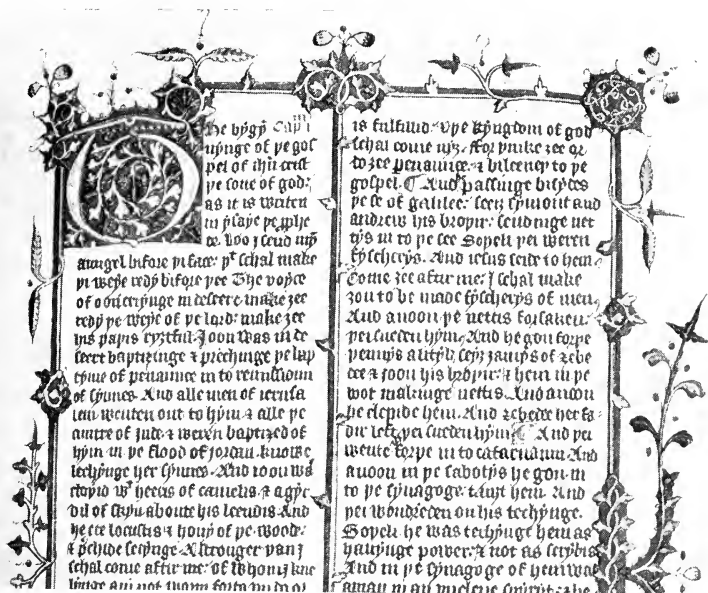 he bygȳ Cap̄ i
nynge of þe gos
pel of ihū crist
þe sone of god:
as it is writen
in ysaye þe ꝓphe
te. Loo ȝ send myn
aungel bifore þi face: þt schal make
þi weye redy bifore þee The voyce
of oon criynge in desert: make ȝee
redy þe weye of þe lord: make ȝee
his paþis ryȝtful. Joon was in de
seert baptisinge ⁊ prechinge þe bap
tyme of penaunce in to remissioun
of synnes And alle men of ierusa
lem wenten out to hym ⁊ alle þe
cuntre of jude ⁊ weren baptized of
hym in þe flood of jordan knowe
lechynge her synnes And ioon was
cloþid wt heeris of camelis ⁊ a gyr
dil of skyn aboute his leendis And
he eete locustis ⁊ hony of þe wode
⁊ p̄chide seiynge A stronger þan ȝ
schal come aftir me: of whom ȝ kne
linge am not worþi forto
is fulfillid: ⁊ þe kyngdom of god
schal come nyȝ: ffor þinke ȝee or
do ȝee penaunce: ⁊ bileeueþ to þe
gospel. And passinge bisydes
þe se of galilee: seeȝ symont and
andrew his broþir: sendinge net
tys in to þe see Soþeli þei weren
fyscherys. And iesus seide to hem
Come ȝee aftir me: I schal make
ȝou to be maad fyscherys of men
And anoon þe nettis forsaken:
þei sueden hym. And he gon forþe
þennys a lityl: seyȝ jamys of ȝebe
dee ⁊ joon his broþir: ⁊ hem in þe
boot makinge nettis. And anoon
he clepide hem. And ȝebede her fa
dir left þei sueden hym And þei
wente forþe in to cafarnaum. And
anoon in þe sabotys he gon in
to þe synagoge tauȝt hem And
þei wondreden on his techynge.
Soþeli he was techynge hem as
hauynge power: ⁊ not as scrybis
And in þe synagoge of hem was
a man in an unclene spirit: ⁊ he